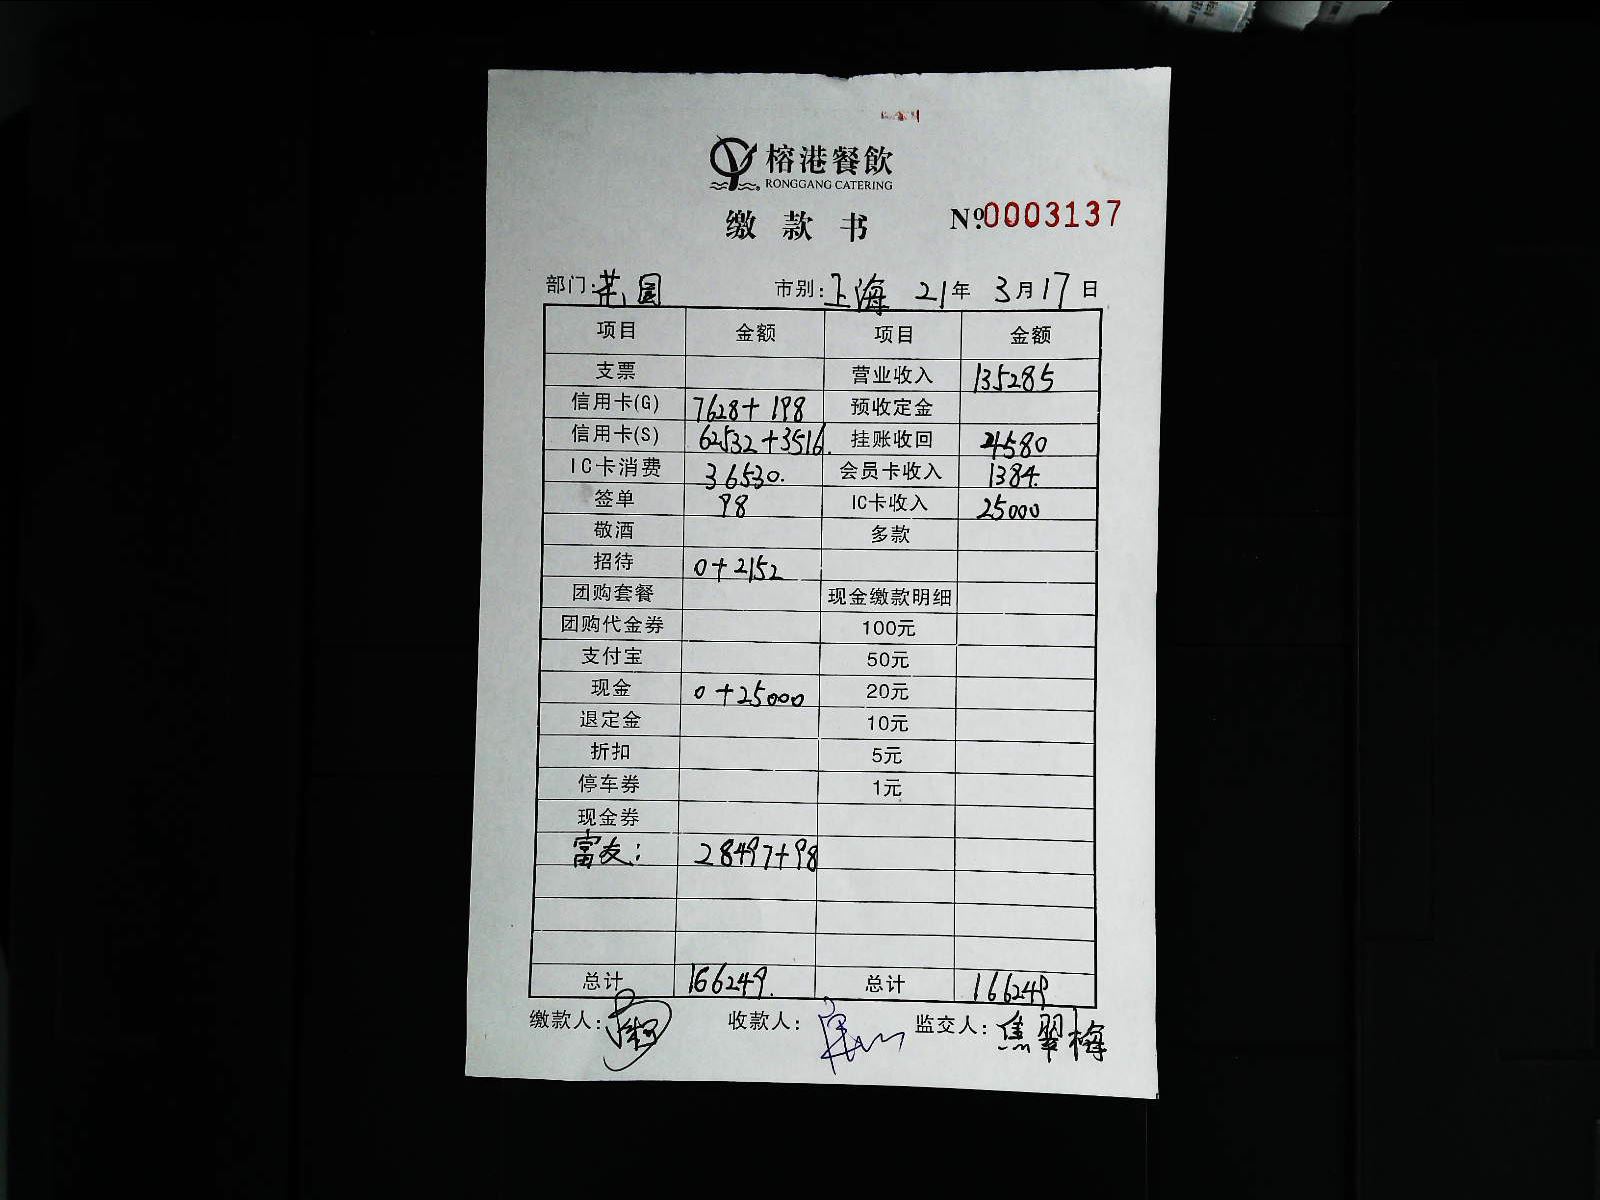 榕港餐飲
RONGGANG CATERING
缴款书 №0003137
部门:花园 市别:上海 21年 3月17日
项目 金额 项目 金额
支票 营业收入 135285
信用卡(G) 7628+198 预收定金
信用卡(S) 62532+3516. 挂账收回 4580
IC卡消费 36530. 会员卡收入 1384.
签单 98 IC卡收入 25000
敬酒 多款
招待 0+2152
团购套餐 现金缴款明细
团购代金券 100元
支付宝 50元
现金 0+25000 20元
退定金 10元
折扣 5元
停车券 1元
现金券
富友: 28497+98
总计 166249. 总计 166249
缴款人: 收款人: 监交人:焦翠梅